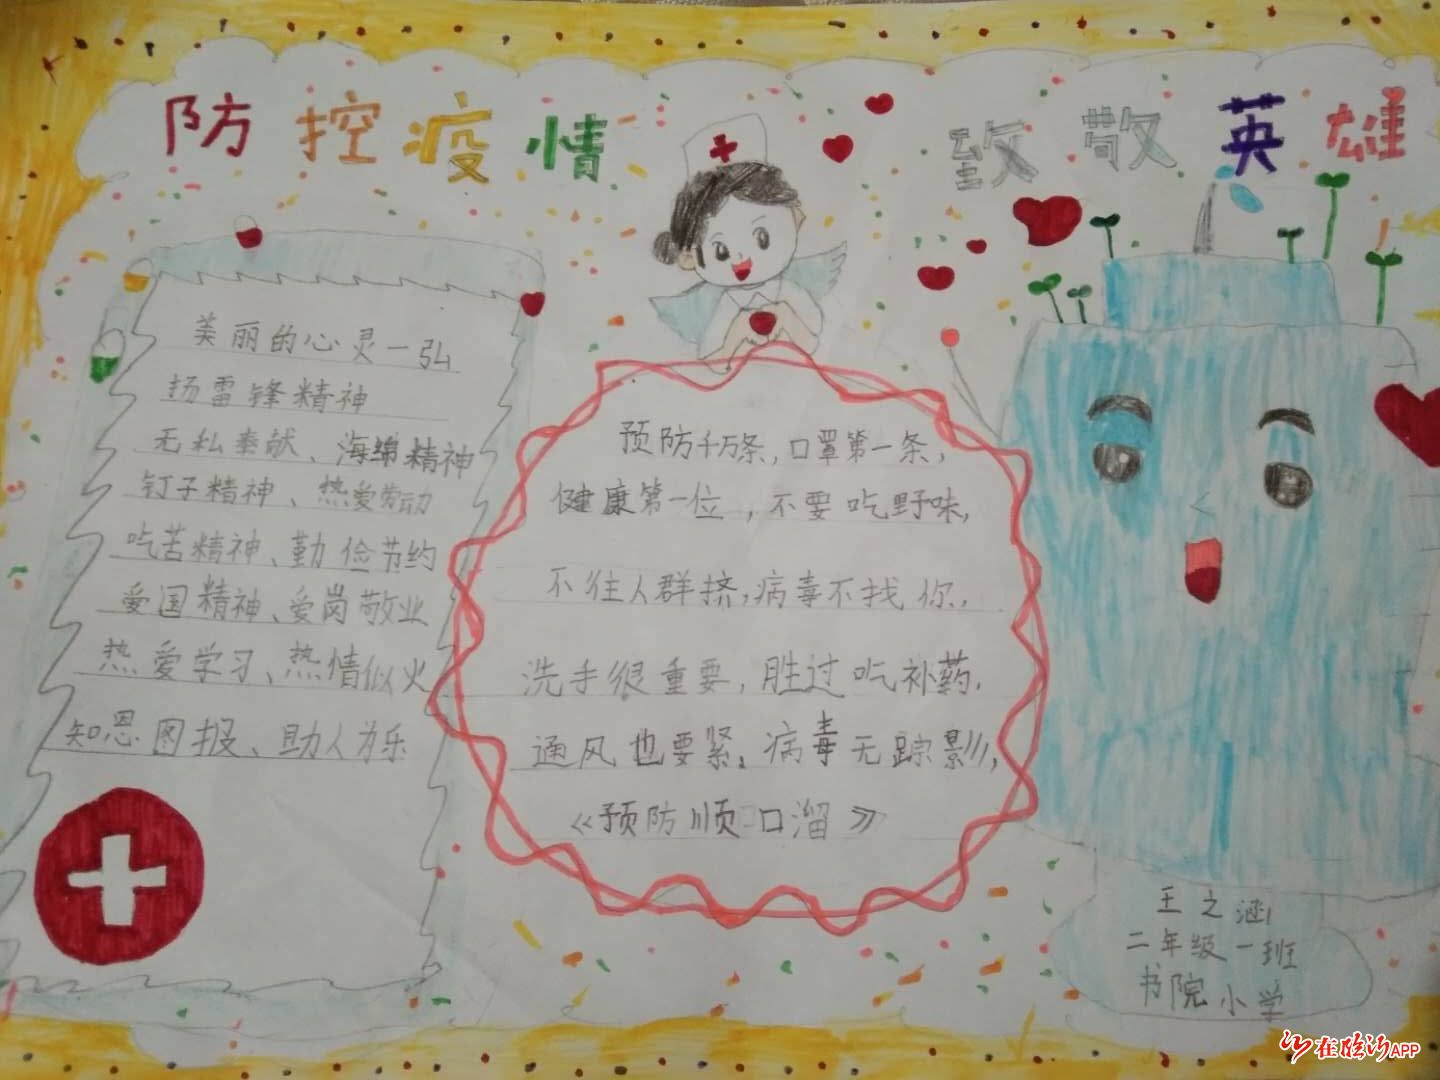 防控疫情 致敬英雄
美丽的心灵一弘
扬雷锋精神
无私奉献、海绵精神
钉子精神、热爱劳动
吃苦精神、勤俭节约
爱国精神、爱岗敬业
热爱学习、热情似火
知恩图报、助人为乐
预防千万条,口罩第一条,
健康第一位,不要吃野味,
不往人群挤,病毒不找你,
洗手很重要,胜过吃补药.
通风也要紧。病毒无踪影,
《预防顺口溜》
王之涵
二年级一班
书院小学
在临沂APP